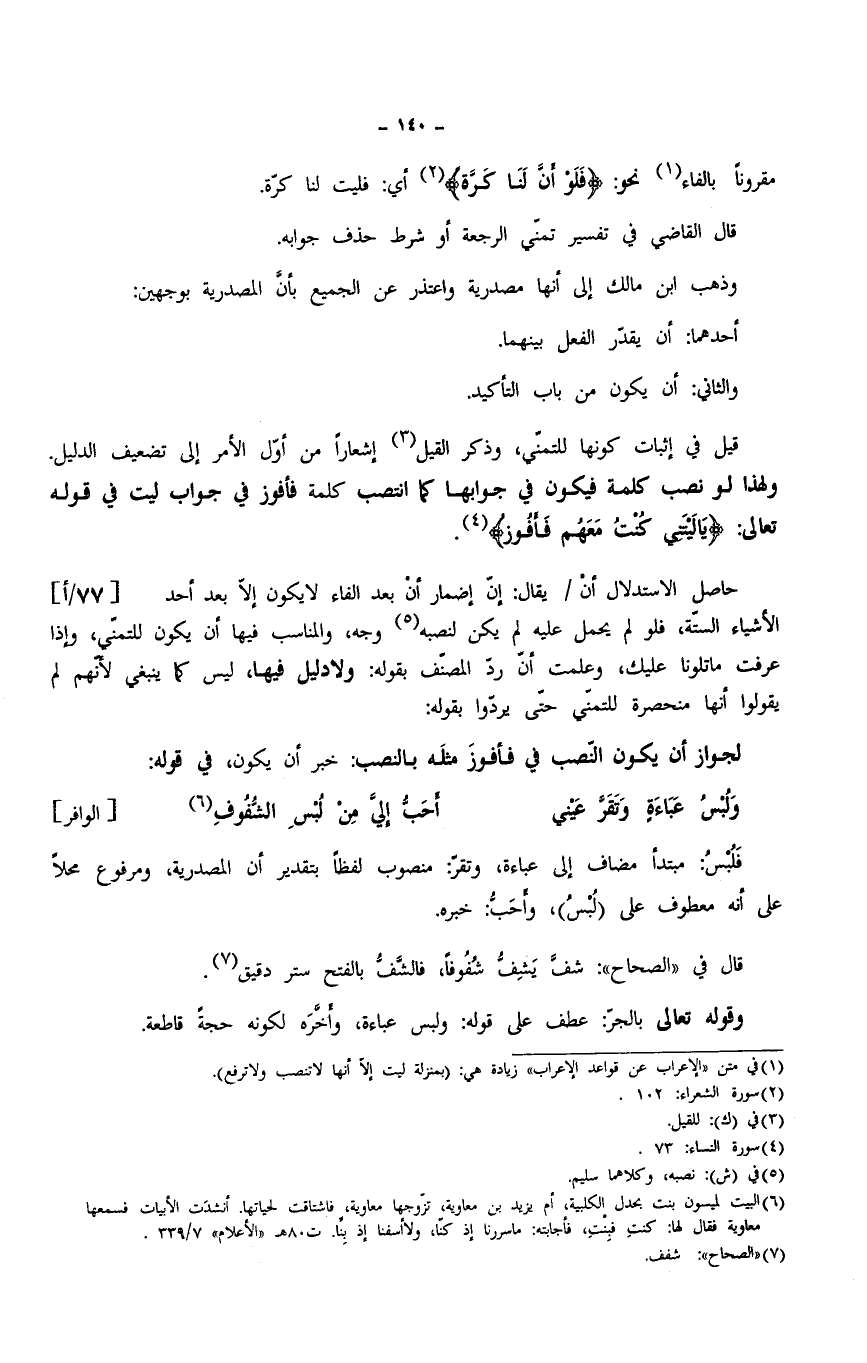 – ١٤٠ –
مقروناً بالفاء(١) نحو: ﴿فَلَوْ أَنَّ لَنَا كَرَّة﴾(٢) أي: فليت لنا كرّة.
قال القاضي في تفسير تمنّي الرجعة أو شرط حذف جوابه.
وذهب ابن مالك إلى أنها مصدرية واعتذر عن الجميع بأنَّ المصدرية بوجهين:
أحدهما: أن يقدّر الفعل بينهما.
والثاني: أن يكون من باب التأكيد.
قيل في إثبات كونها للتمنّي، وذكر القيل(٣) إشعاراً من أوّل الأمر إلى تضعيف الدليل.
ولهذا لو نصب كلمة فيكون في جوابها كما انتصب كلمة فأفوز في جواب ليت في قوله
تعالى: ﴿يَالَيْتَنِي كُنْتُ مَعَهُم فَأَفُوز﴾(٤).
حاصل الاستدلال أنْ / يقال: إنّ إضمار أنْ بعد الفاء لايكون إلاّ بعد أحد [٧٧/أ]
الأشياء الستّة، فلو لم يحمل عليه لم يكن لنصبه(٥) وجه، والمناسب فيها أن يكون للتمنّي، وإذا
عرفت ماتلونا عليك، وعلمت أنّ ردّ المصنّف بقوله: ولادليل فيها، ليس كما ينبغي لأنّهم لم
يقولوا أنها منحصرة للتمنّي حتّى يردّوا بقوله:
لجواز أن يكون النّصب في فأفوزَ مثلَه بالنصب: خبر أن يكون، في قوله:
وَلُبْسُ عَبَاءَةٍ وَتَقَرَّ عَيْني أَحَبُّ إِليَّ مِنْ لُبْسِ الشُّفُوفِ(٦) [الوافر]
فَلُبْسُ: مبتدأ مضاف إلى عباءة، وتقرّ: منصوب لفظاً بتقدير أن المصدرية، ومرفوع محلاً
على أنه معطوف على (لُبْسُ)، وأَحَبُّ: خبره.
قال في «الصحاح»: شفَّ يَشِفُّ شُفُوفاً، فالشَّفُّ بالفتح ستر دقيق(٧).
وقوله تعالى بالجرّ: عطف على قوله: ولبس عباءة، وأَخَّرَه لكونه حجةً قاطعة.
(١) في متن «الإعراب عن قواعد الإعراب» زيادة هي: (بمنزلة ليت إلاّ أنها لاتنصب ولاترفع).
(٢) سورة الشعراء: ١٠٢ .
(٣) في (ك): للقيل.
(٤) سورة النساء: ٧٣ .
(٥) في (ش): نصبه، وكلاهما سليم.
(٦) البيت لميسون بنت بحدل الكلبية، أم يزيد بن معاوية، تزّوجها معاوية، فاشتاقت لحياتها. أنشدَت الأبيات فسمعها
معاوية فقال لها: كنتِ فبِنْتِ، فأجابته: ماسررنا إذ كنّا، ولاأسفنا إذ بِنّا. ت٨٠هـ «الأعلام» ٣٣٩/٧ .
(٧) «الصحاح»: شفف.